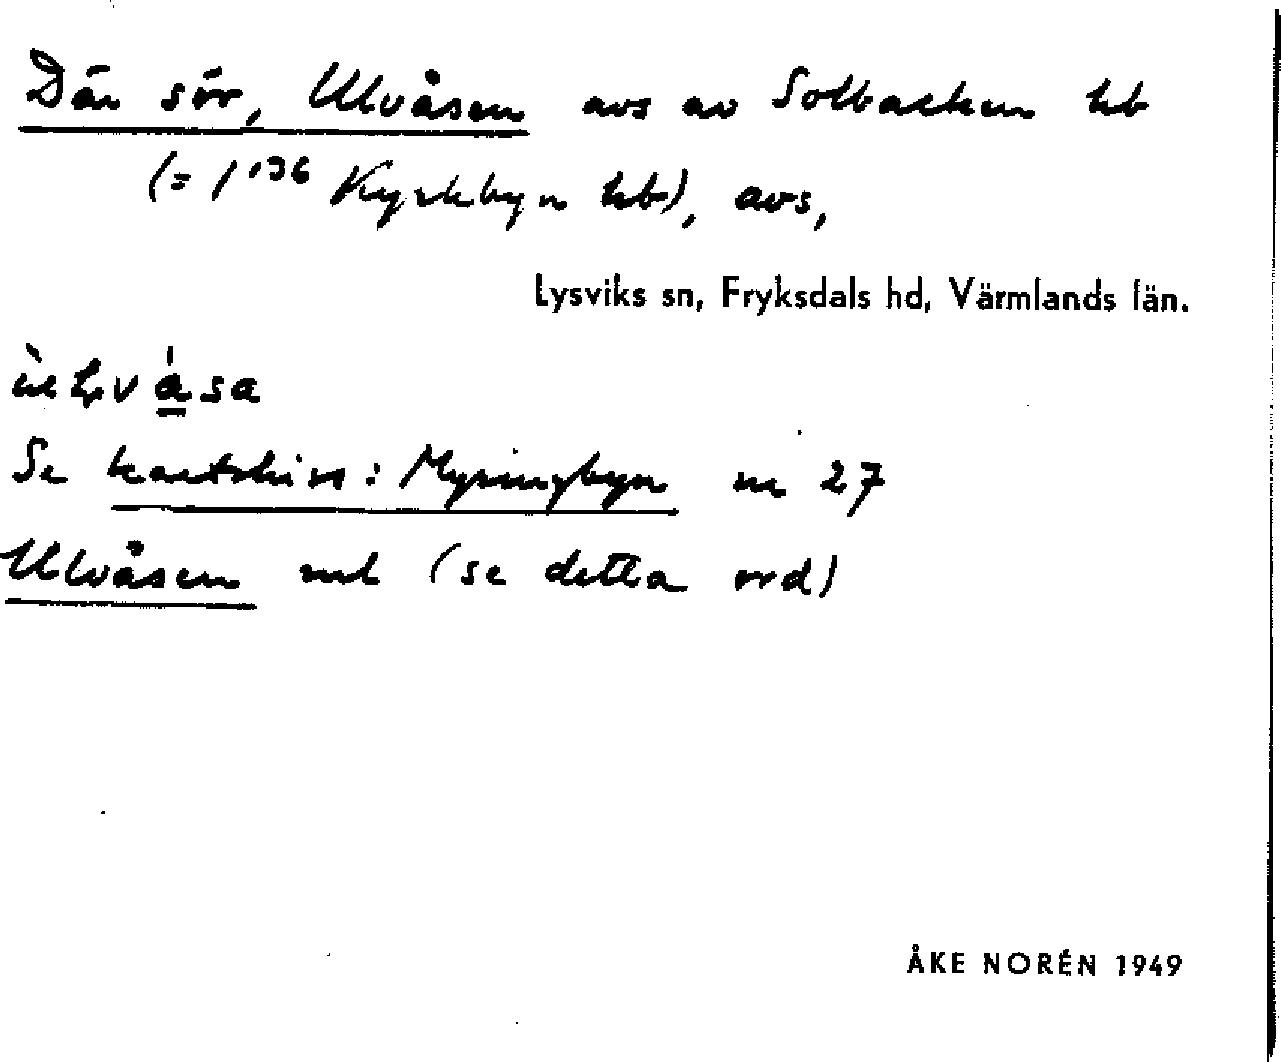 Där sör, Ulvåsen avs av Solbacken hb
(= 1¹³⁶ Kyrkbyn hb), avs,
Lysviks sn, Fryksdals hd, Värmlands län.
Se kartskiss: Myringbyn nr 27
Ulvåsen (se detta ord)
ÅKE NORÉN 1949